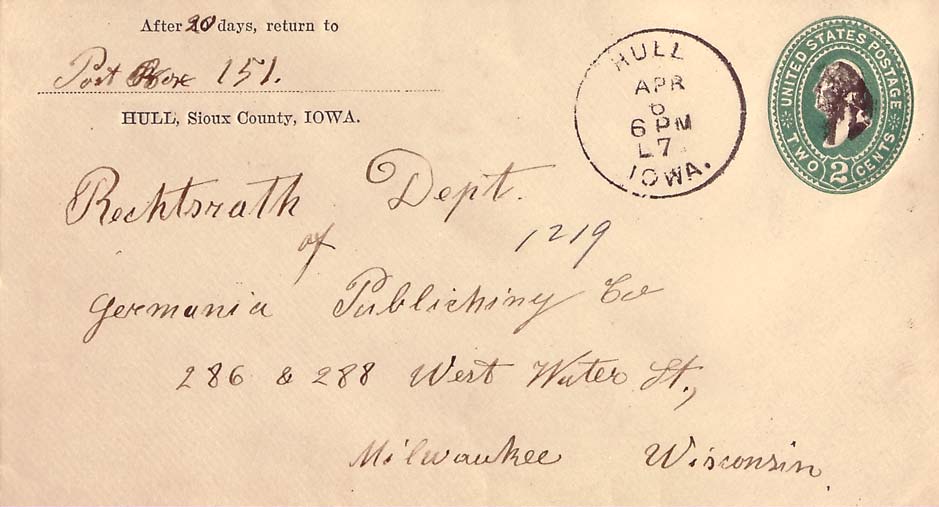 After 20 days, return to
Post Box 151.
HULL, Sioux County, IOWA.
HULL
APR
6
6 PM
L7
IOWA.
UNITED STATES POSTAGE
TWO 2 CENTS
Rechtsrath Dept.
of 1219
Germania Publiching Co
286 & 288 West Water St.,
Milwaukee Wisconsin.